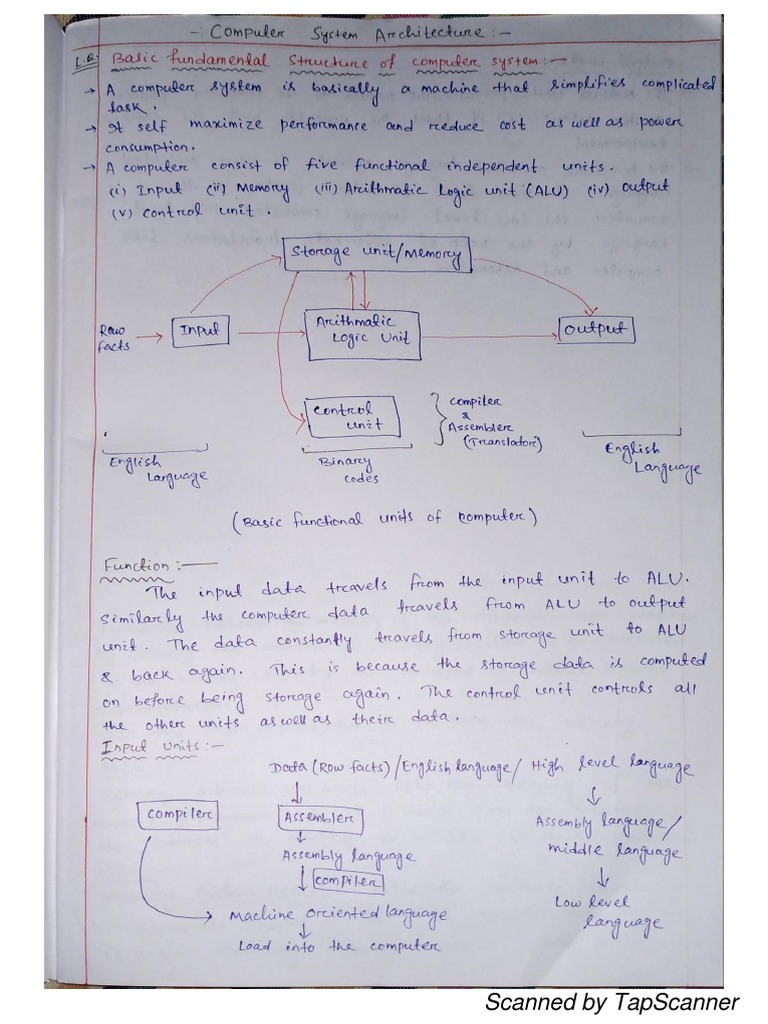 -: Computer System Architecture :-
L.Q. Basic fundamental Structure of computer system:-
→ A computer system is basically a machine that simplifies complicated
task.
→ It self maximize performance and reduce cost as well as power
consumption.
→ A computer consist of five functional independent units.
(i) Input (ii) Memory (iii) Arithmatic Logic unit (ALU) (iv) output
(v) control unit.
Storage unit/Memory
Row
facts
Input
Arithmatic
Logic Unit
output
control
unit
compiler
&
Assembler
(Translator)
English
Language
Binary
codes
English
Language
(Basic functional units of computer)
Function :-
The input data travels from the input unit to ALU.
Similarly the computer data travels from ALU to output
unit. The data constantly travels from storage unit to ALU
& back again. This is because the storage data is computed
on before being storage again. The control unit controls all
the other units as well as their data.
Input units:-
Data (Row facts) / English language / High level language
compiler
Assembler
Assembly language /
middle language
Assembly language
compiler
Machine orciented language
Low level
language
Load into the computer
Scanned by TapScanner